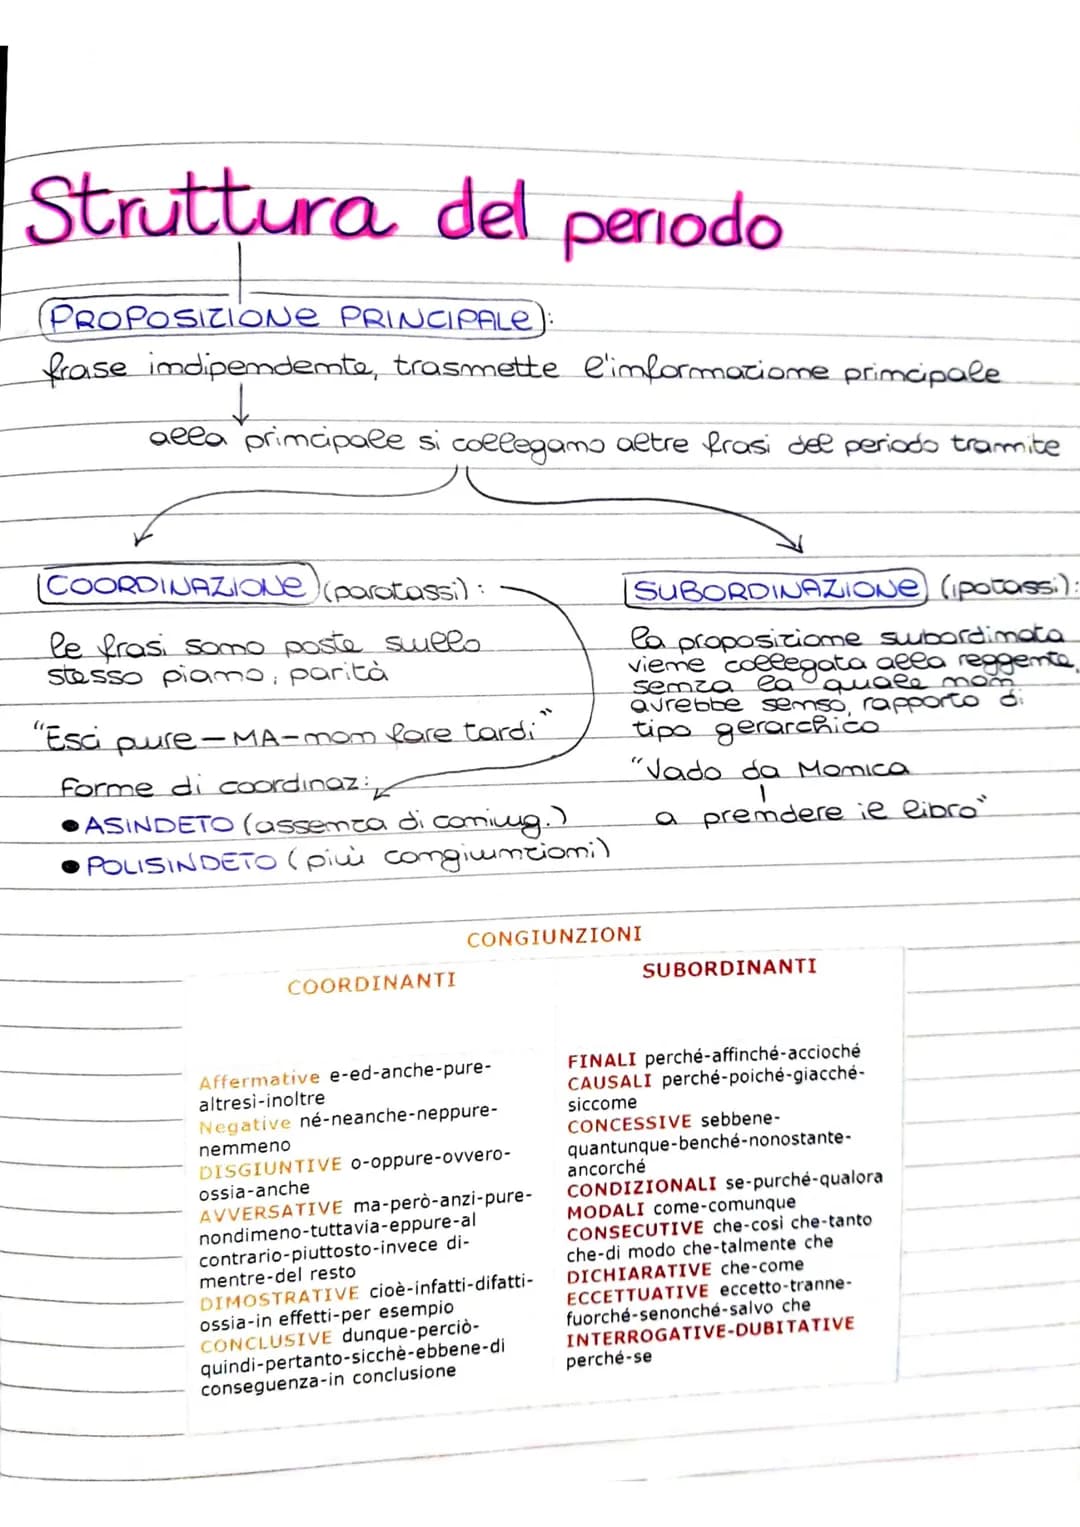 Struttura del periodo
PROPOSIZIONE PRINCIPALE:
frase indipendente, trasmette l'informazione principale
alla principale si collegano altre frasi del periodo tramite
COORDINAZIONE (paratassi):
le frasi sono poste sullo
stesso piano, parità
"Esci pure - MA - non fare tardi"
Forme di coordinaz:
• ASINDETO (assenza di coniug.)
• POLISINDETO (più congiunzioni)
SUBORDINAZIONE (ipotassi):
la proposizione subordinata
viene collegata alla reggente,
senza la quale non
avrebbe senso, rapporto di
tipo gerarchico
"Vado da Monica
a prendere il libro"
CONGIUNZIONI
COORDINANTI
Affermative e-ed-anche-pure-
altresì-inoltre
Negative né-neanche-neppure-
nemmeno
DISGIUNTIVE o-oppure-ovvero-
ossia-anche
AVVERSATIVE ma-però-anzi-pure-
nondimeno-tuttavia-eppure-al
contrario-piuttosto-invece di-
mentre-del resto
DIMOSTRATIVE cioè-infatti-difatti-
ossia-in effetti-per esempio
CONCLUSIVE dunque-perciò-
quindi-pertanto-sicchè-ebbene-di
conseguenza-in conclusione
SUBORDINANTI
FINALI perché-affinché-accioché
CAUSALI perché-poiché-giacché-
siccome
CONCESSIVE sebbene-
quantunque-benché-nonostante-
ancorché
CONDIZIONALI se-purché-qualora
MODALI come-comunque
CONSECUTIVE che-così che-tanto
che-di modo che-talmente che
DICHIARATIVE che-come
ECCETTUATIVE eccetto-tranne-
fuorché-senonché-salvo che
INTERROGATIVE-DUBITATIVE
perché-se